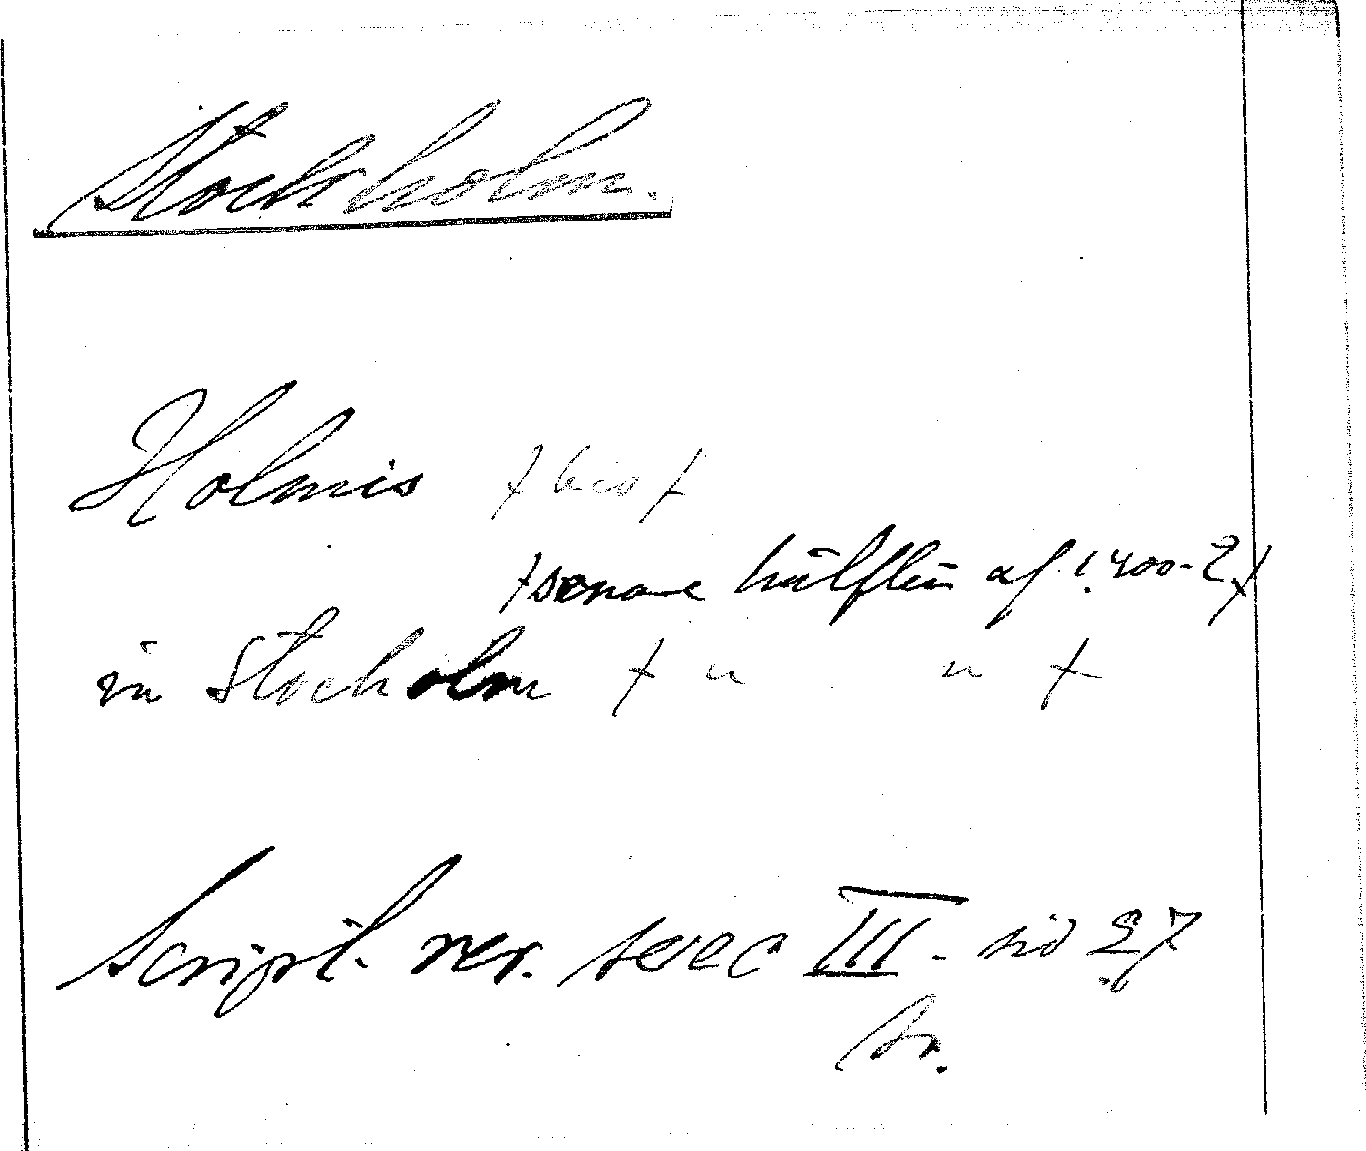 Stockholm.
Holmis
+senare hälften af 1400-t+
in Stocholm + " " +
Script. rer. svec III - sid 27